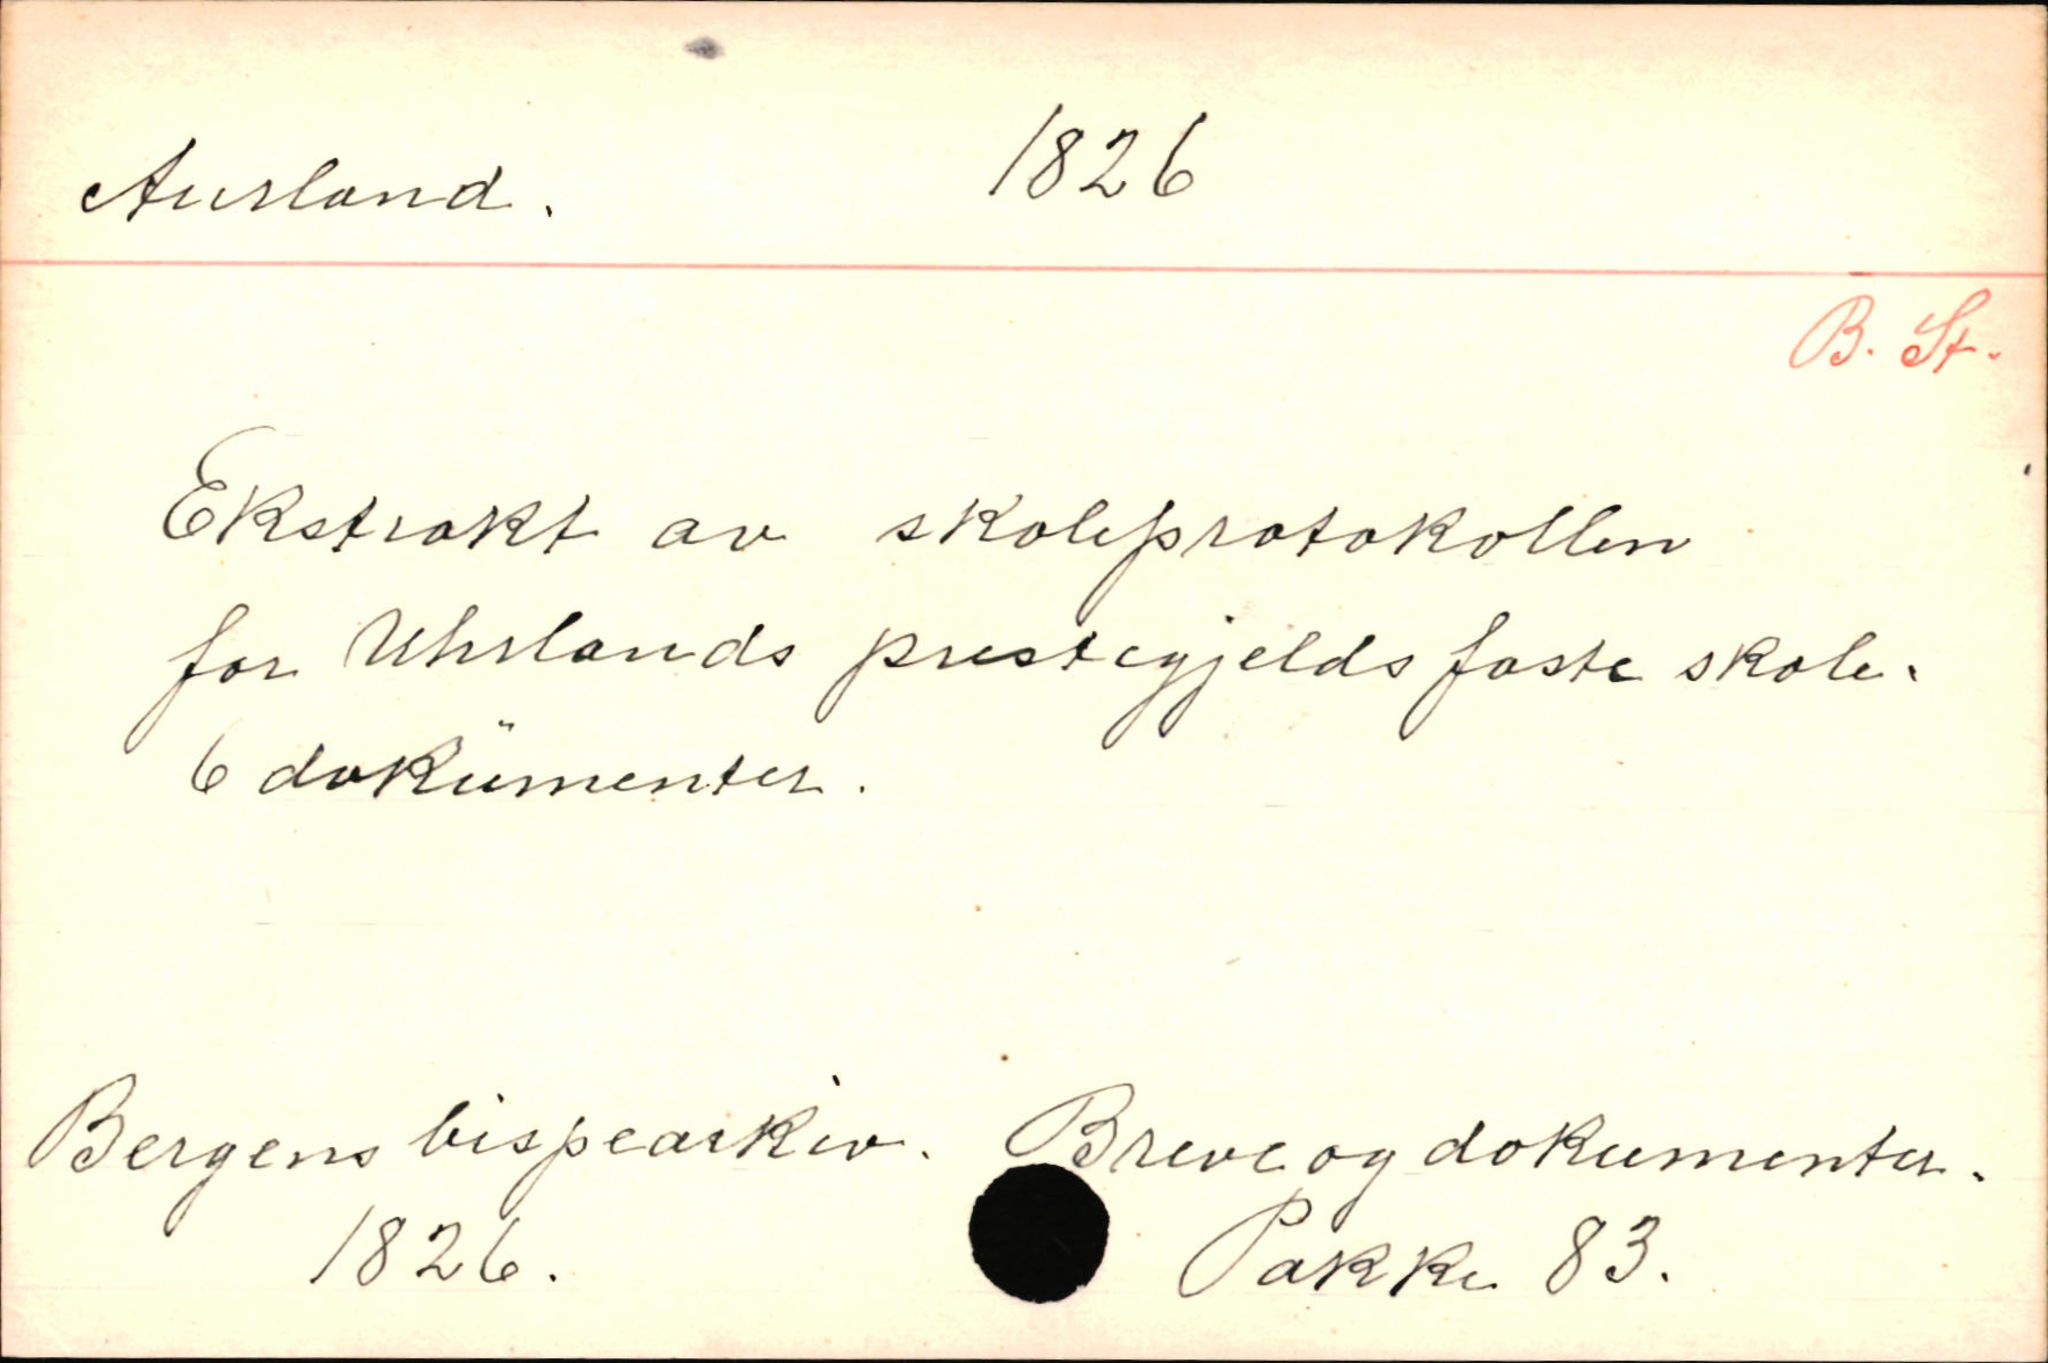 Aurland. 1826
B. St.
Ekstrakt av skoleprotokollen
for Uhrlands prestegjelds faste skole.
6 dokümenter.
Bergens bispearkiv. Breve og dokumenter.
1826. Pakke 83.